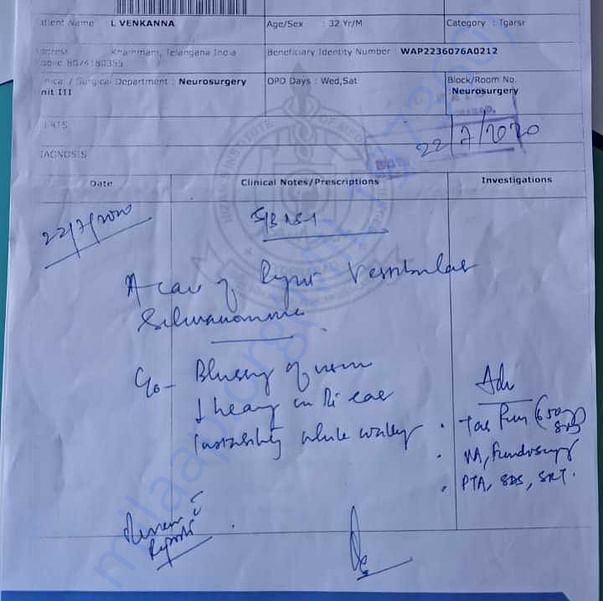 Patient Name L VENKANNA Age/Sex : 32 Yr/M Category : Tgarsr
Khammam, Telangana India Beneficiary Identity Number WAP2236076A0212
Surgical Department : Neurosurgery OPD Days : Wed,Sat Block/Room No.
nit III :Neurosurgery
22/7/2020
IAGNOSIS
Date Clinical Notes/Prescriptions Investigations
22/7/2020 S/B NS-1
A case of Right Vestibular
Schwannoma
C/o - Blurring of vision
↓ hearing in Rt ear
Instability while walking
Adv
VA, Fundoscopy
PTA, SDS, SRT.
Review c̄
Reports